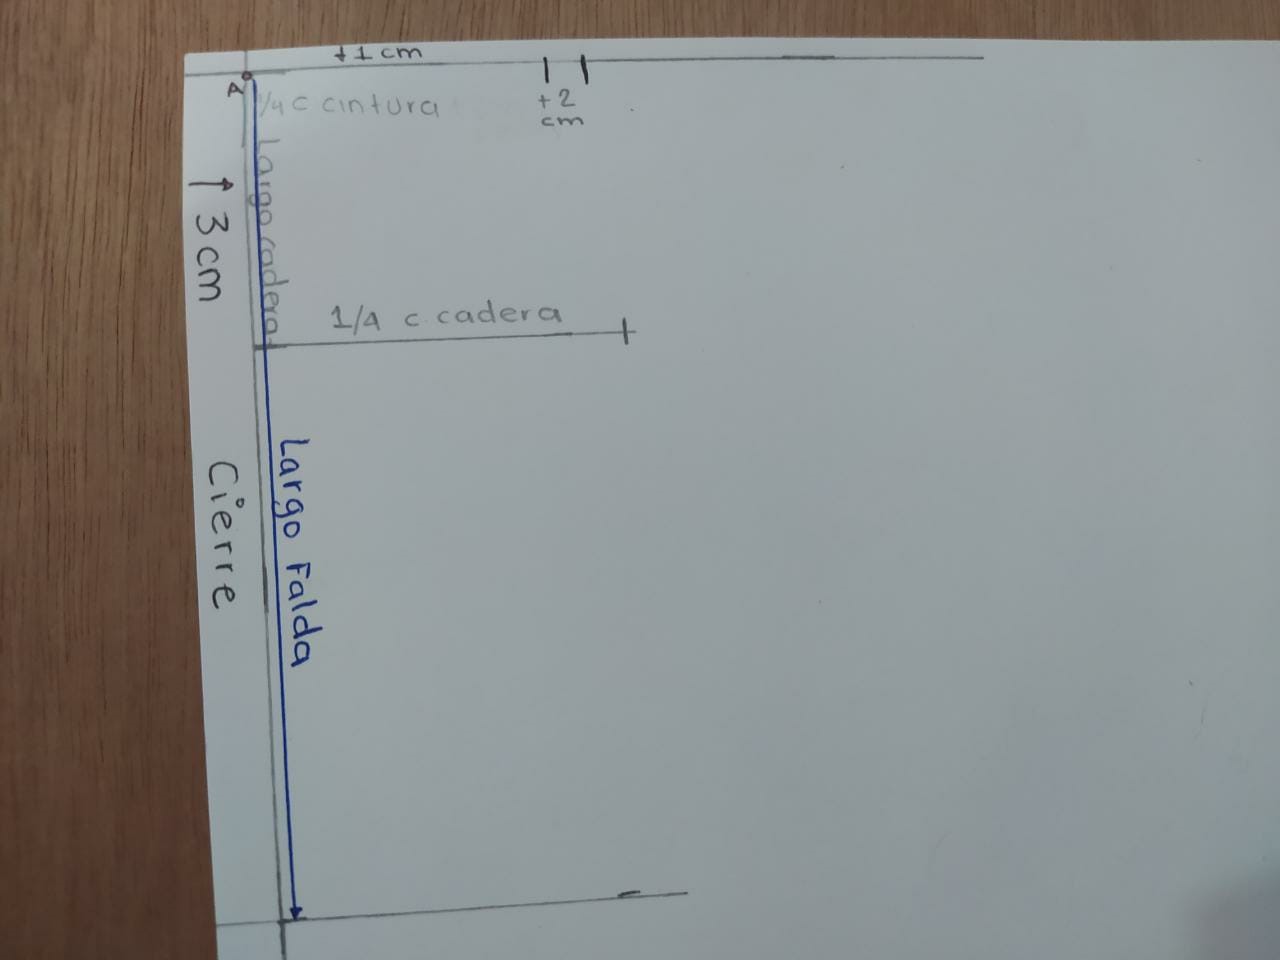 +1 cm
A
1/4 c cintura
+2
cm
Largo cadera
↑ 3cm
1/4 c. cadera
Largo Falda
Cierre